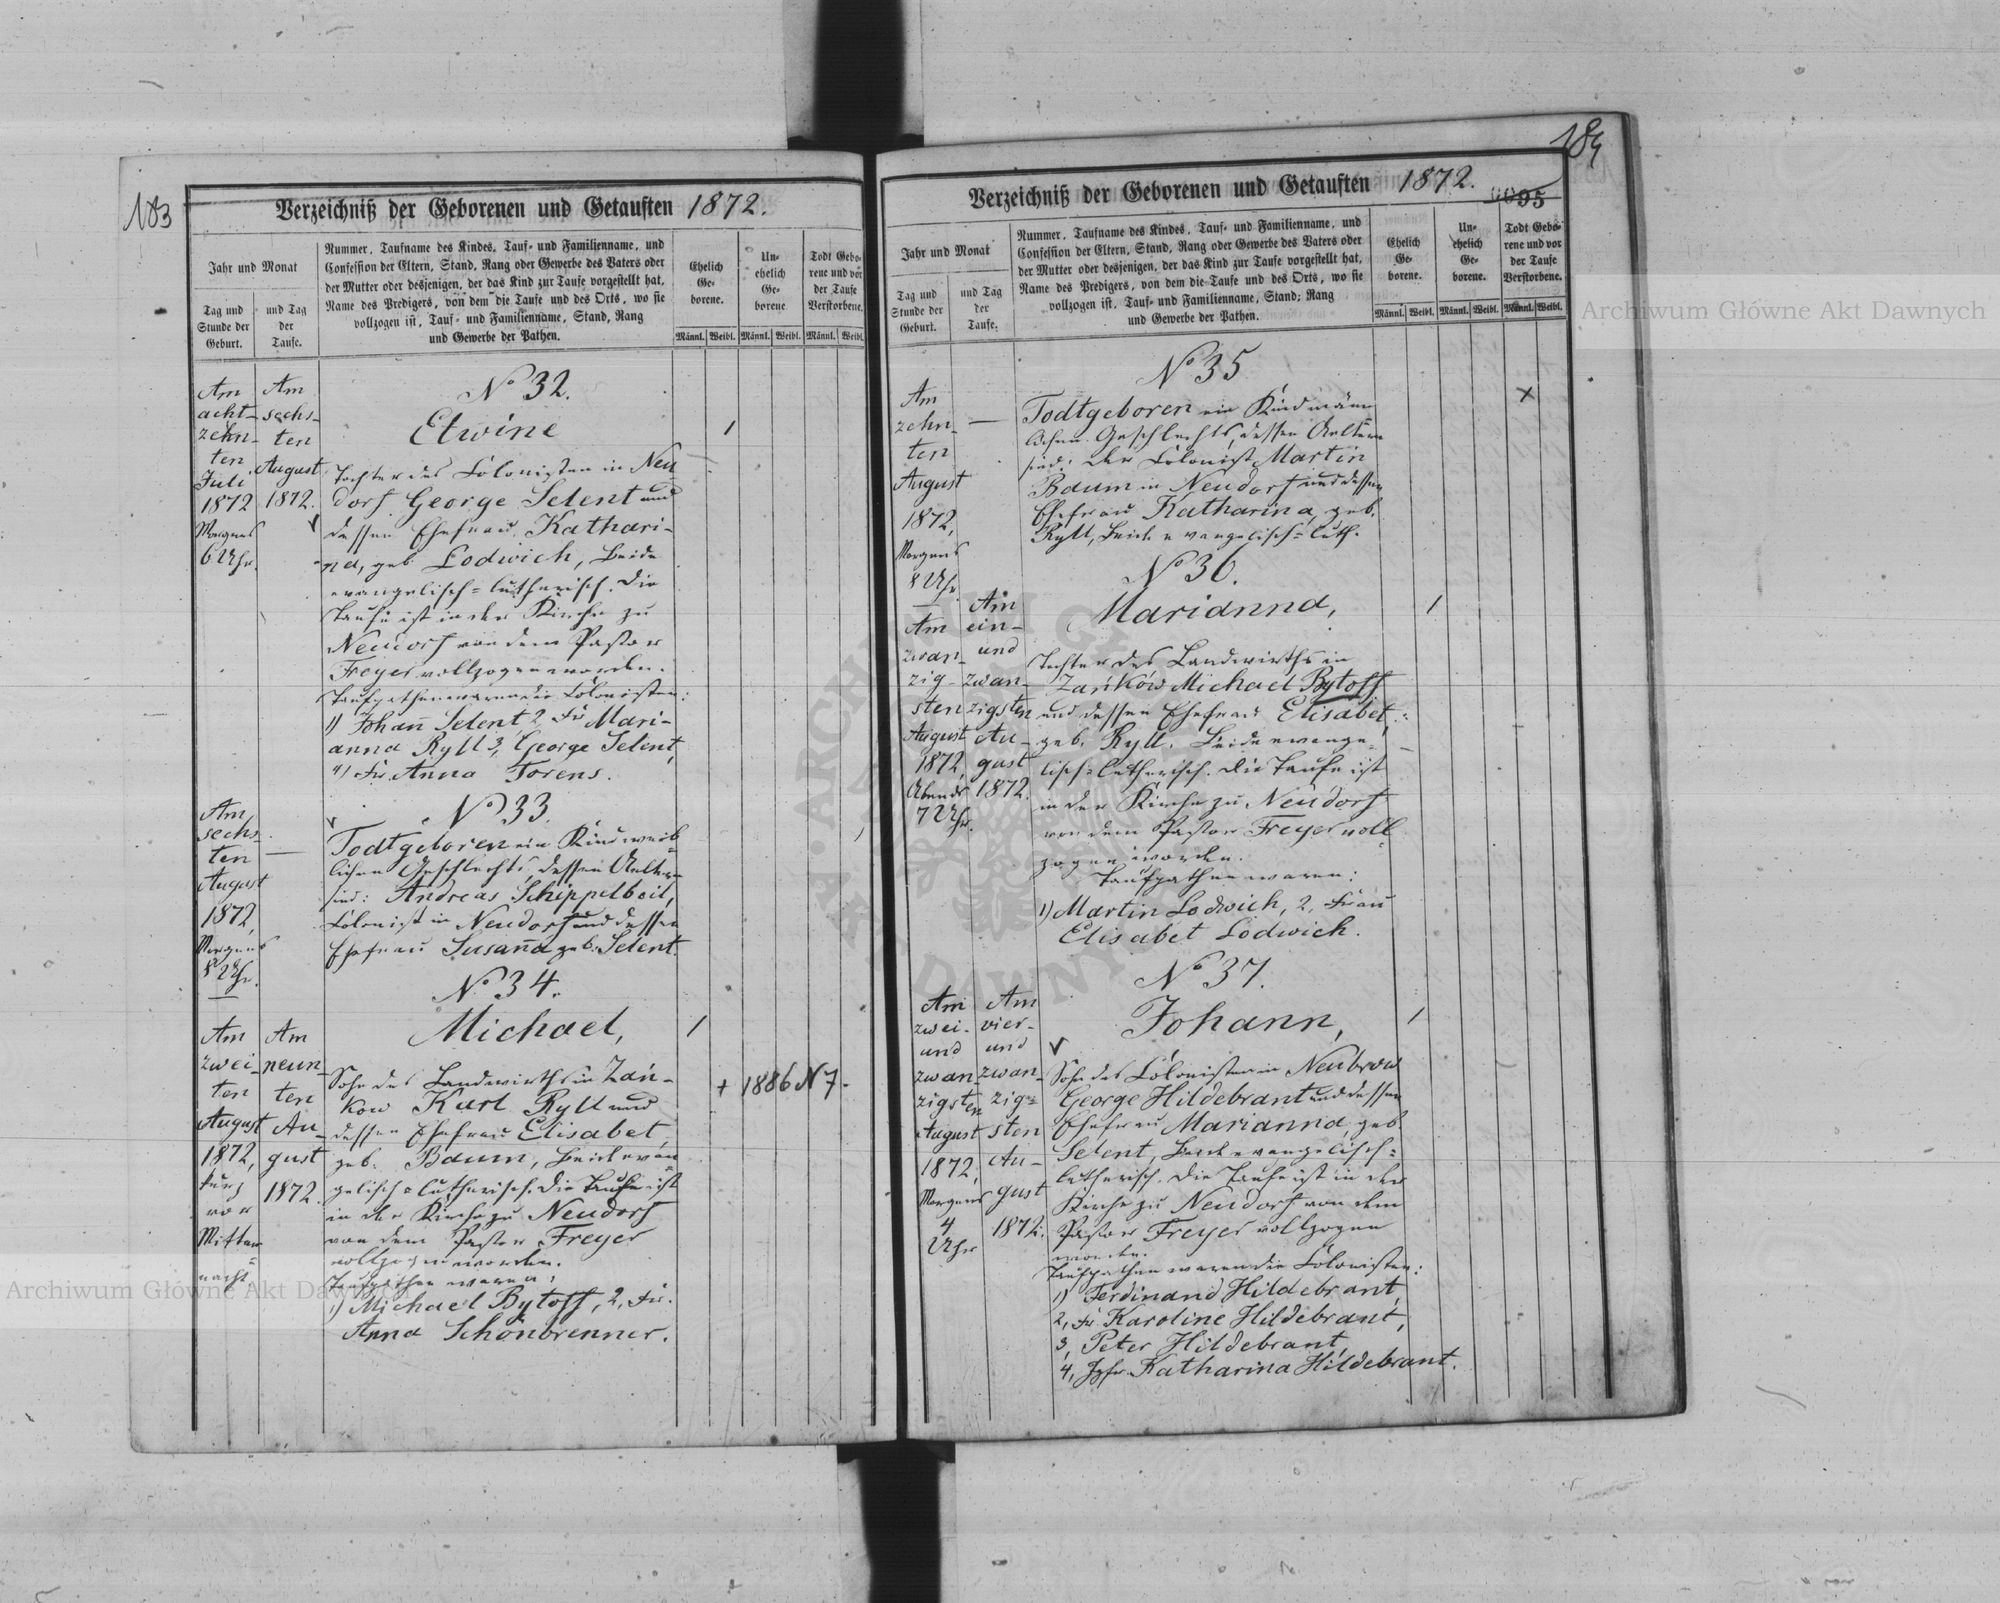 183
Verzeichniß der Geborenen und Getauften 1872.
Jahr und Monat
Tag und Stunde der Geburt.
und Tag der Taufe.
Nummer, Taufname des Kindes, Tauf- und Familienname, und
Confession der Eltern, Stand, Rang oder Gewerbe des Vaters oder
der Mutter oder desjenigen, der das Kind zur Taufe vorgestellt hat,
Name des Predigers, von dem die Taufe und des Orts, wo sie
vollzogen ist, Tauf- und Familienname, Stand, Rang
und Gewerbe der Pathen.
Ehelich Ge-borene.
Un-ehelich Ge-borene
Todt Gebo-rene und vor der Taufe Verstorbene.
Männl. Weibl. Männl. Weibl. Männl. Weibl.
Am acht-zehn-ten Juli 1872 Morgens 6 Uhr.
Am sechs-ten August 1872.
No 32.
Elwine
Tochter des Colonisten in Neu
dorf George Selent und
dessen Ehefrau Kathari-
na, geb. Lodwich, beide
evangelisch-lutherisch. Die
Taufe ist in der Kirche zu
Neudorf von dem Pastor
Freyer vollzogen worden.
Taufpathen waren die Colonisten:
1) Johañ Selent, 2, Fr. Mari-
anna Ryll 3, George Selent,
4) Fr. Anna Torens.
Am sechs-ten August 1872, Morgens 8 Uhr.
No 33.
Todtgeboren ein Kind weib-
lichen Geschlechts, dessen Aeltern
sind: Andreas Schippelbeil,
Colonist in Neudorf und dessen
Ehefrau Susaña geb. Selent.
Am zwei-ten August 1872, kurz vor Mitter-nacht
Am neun-ten Au-gust 1872.
No 34.
Michael,
Sohn des Landwirths in Zań-
kow Karl Ryll und
dessen Ehefrau Elisabet,
geb. Baum, beide evan
gelisch-lutherisch. Die Taufe ist
in der Kirche zu Neudorf
von dem Pastor Freyer
vollzogen worden.
Taufpathen waren:
1) Michael Bytoff, 2, Fr.
Anna Schönbrenner.
+ 1886 N 7.
184
Verzeichniß der Geborenen und Getauften 1872.
95
Jahr und Monat
Tag und Stunde der Geburt.
und Tag der Taufe.
Nummer, Taufname des Kindes, Tauf- und Familienname, und
Confession der Eltern, Stand, Rang oder Gewerbe des Vaters oder
der Mutter oder desjenigen, der das Kind zur Taufe vorgestellt hat,
Name des Predigers, von dem die Taufe und des Orts, wo sie
vollzogen ist, Tauf- und Familienname, Stand, Rang
und Gewerbe der Pathen.
Ehelich Ge-borene.
Un-ehelich Ge-borene.
Todt Gebo-rene und vor der Taufe Verstorbene.
Männl. Weibl. Männl. Weibl. Männl. Weibl.
Am zehn-ten August 1872, Morgens 8 Uhr
No 35
Todtgeboren ein Kind männ
lichen Geschlechts, dessen Aeltern
sind: der Colonist Martin
Baum in Neudorf und dessen
Ehefrau Katharina, geb.
Ryll, beide evangelisch-luth.
Am zwan-zig-sten August 1872, Abends 7 Uhr.
Am ein-und zwan-zigsten Au-gust 1872.
No 36.
Marianna,
Tochter des Landwirths in
Zańków Michael Bytoff
und dessen Ehefrau Elisabet,
geb. Ryll. Beide evange-
lisch-lutherisch. Die Taufe ist
in der Kirche zu Neudorf
von dem Pastor Freyer voll
zogen worden.
Taufpathen waren:
1) Martin Lodwich, 2, Frau
Elisabet Lodwich.
Am zwei-und zwan-zigsten August 1872, Morgens 4 Uhr
Am vier-und zwan-zig-sten Au-gust 1872.
No 37.
Johann,
Sohn des Colonisten in Neubrow
George Hildebrant und dessen
Ehefrau Marianna, geb.
Selent, beide evangelisch-
lutherisch. Die Taufe ist in der
Kirche zu Neudorf von dem
Pastor Freyer vollzogen
worden.
Taufpathen waren die Colonisten:
1) Ferdinand Hildebrant,
2, Fr. Karoline Hildebrant,
3, Peter Hildebrant,
4, Jgfr. Katharina Hildebrant.
Archiwum Główne Akt Dawnych
Archiwum Główne Akt Dawnych